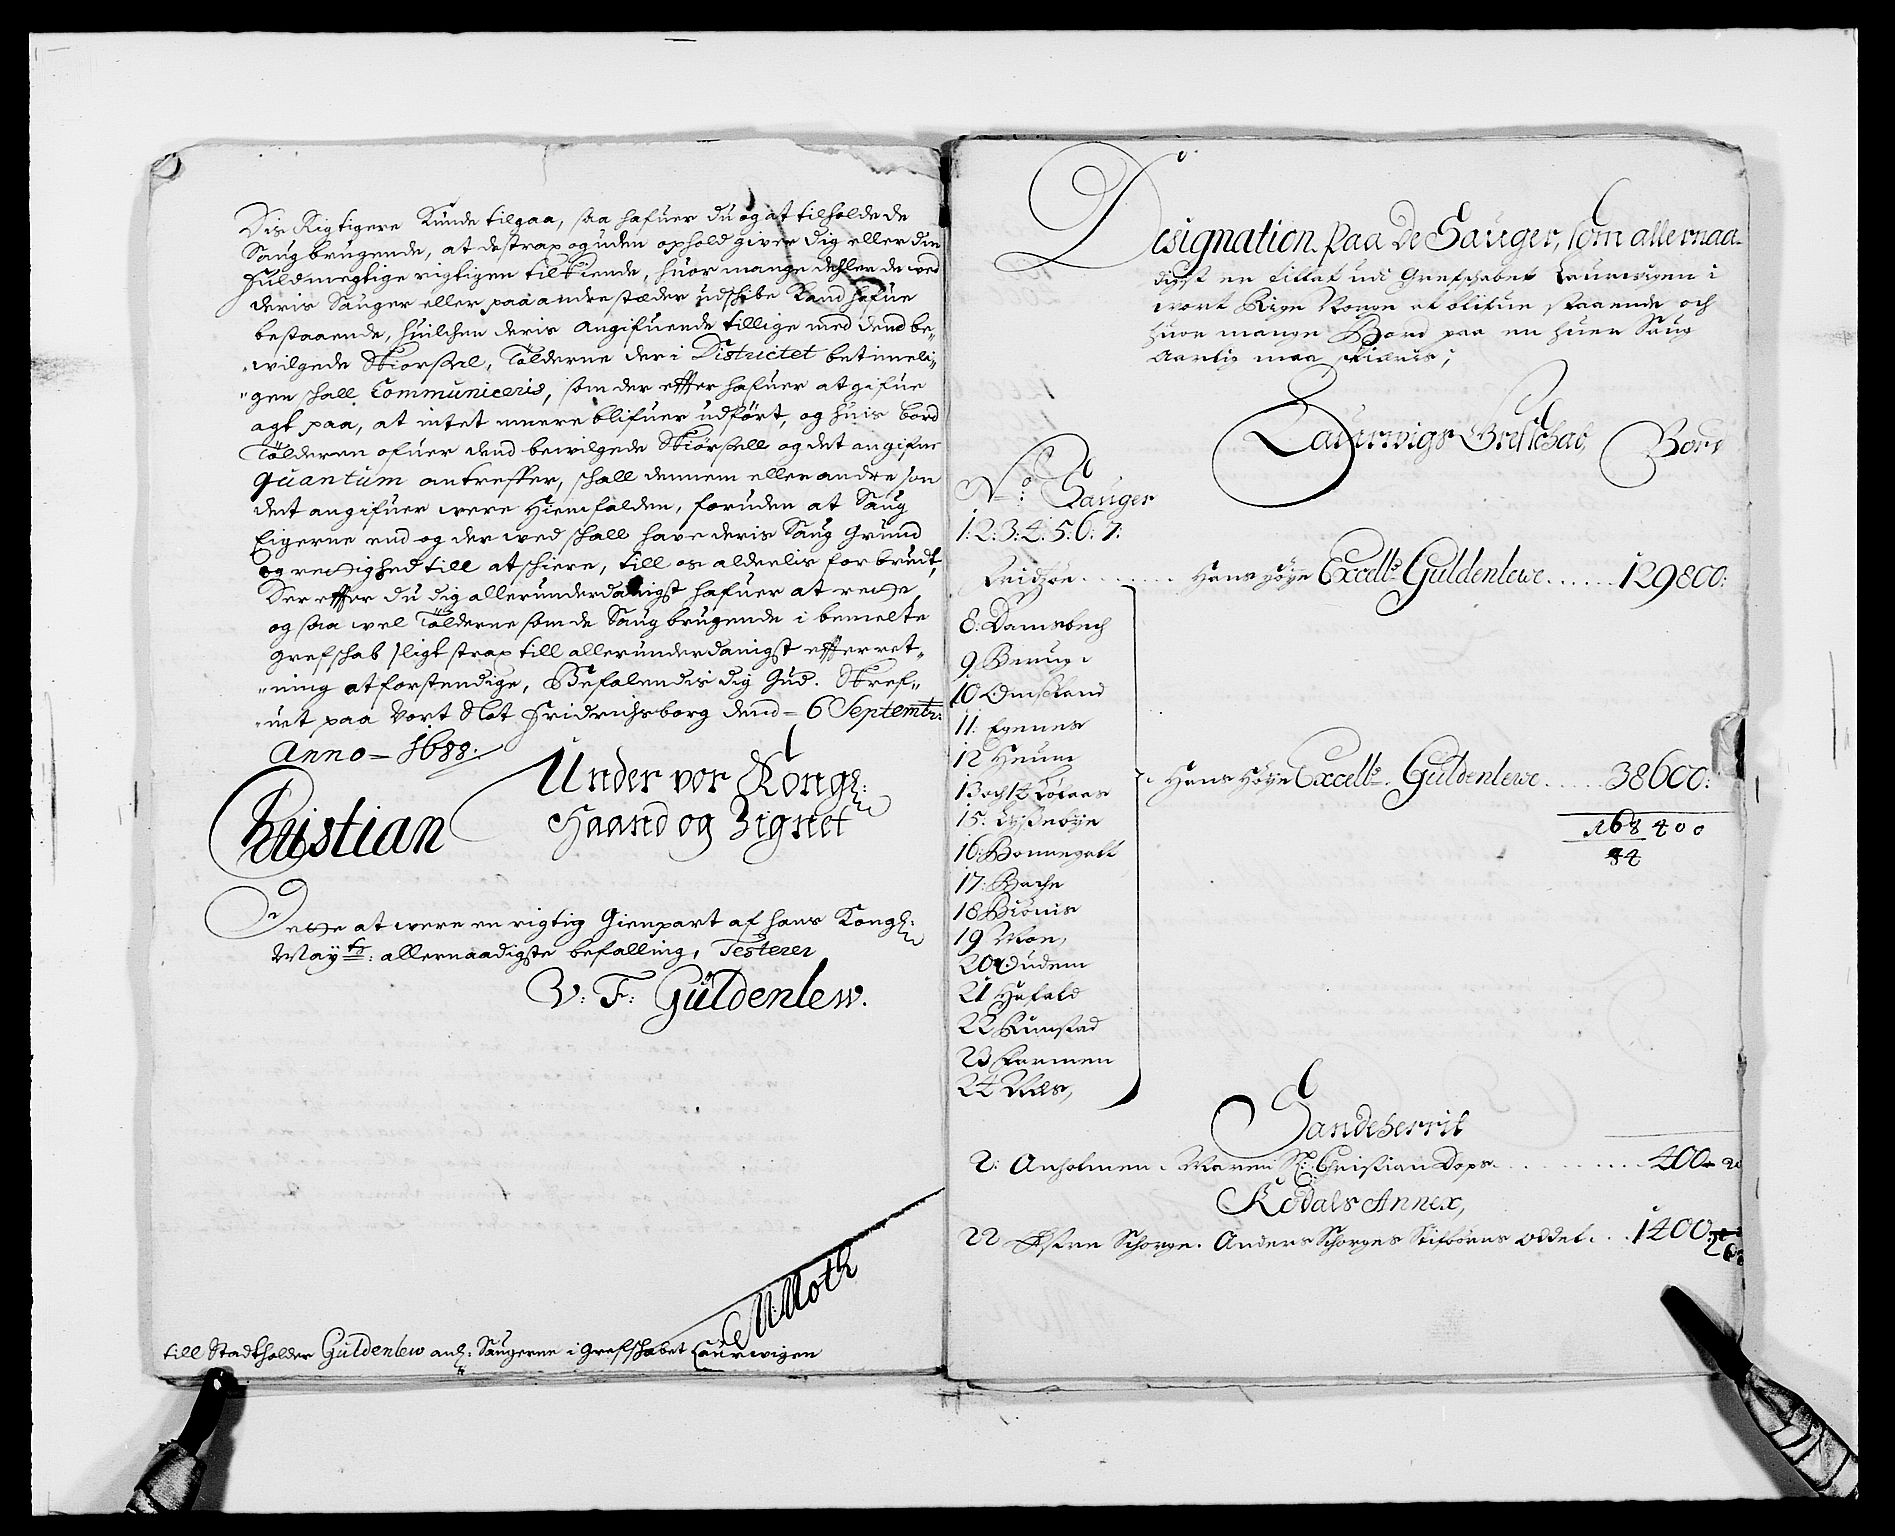 Dis Rigtigere Kunde tilgaa, saa hafuer du og at tilholde de
Saugbrugende, at de strax og uden ophold giver dig eller din
fuldmegtige rigtigen tilkiende, huor mange dehler de ved
deris Sauger eller paa andre stæder udschibe Kand hafue
bestaaende, huilchen deris angifuende tillige med dend be-
wilgede Skiorsel, Tolderne der i Districtet betimeli-
gen schall Communiceris, som der effter hafuer at gifue
agt paa, at intet meere blifuer udført, og huis bord
Tolderen ofuer dend bewilgede Skiørsell og det angifne
quantum antreffer, schall dennem eller andre som
det angifuer were hiemfalden, foruden at Saug
Eigerne end og der wed schall have deris Saug Grund
og rettighed till at schiere, till os aldeelis forbrudt,
Der effter du dig allerunderdanigst hafuer at rette,
og saa wel Tolderne som de Saugbrugende i bemelte
Grefschab sligt strax till allerunderdanigst efferret-
ning at forstendige, Befalendis dig Gud. Skref-
uet paa Vort Slot Fridrichsborg dend 6 Septembr:
Anno 1688.
Under vor Kongl:
Haand og Zignet
Christian
Rette at were en rigtig Gienpart af hans Kongl:
Mayts: allernaadigste befalling, Testerer
V: F: Güldenlew.
M: Moth
till Stadtholder Güldenlew anl: Saugerne i Grefschabet Laurwigen
Designation paa de Sauger, som allernaa-
digst er tillat udi Grefschabet Laurwigen i
wort Rige Norge at blifue staaende och
huor mange Bord paa en huer Saug
Aarlig maa skiæris;
Laurwigs Grefschab, Bord
No: Sauger
1: 2: 3: 4: 5: 6: 7:
Fridzøe . . . . . Hans Høye Excell: Güldenlewe . . . . . 129800:
8: Dambech
9
10 Omsland
11: Egenes
12 Heum
13 och 14
15:
16: Bonnegall
17: Bache
18 Biönis
19 Moe,
20
21 Hafald
22 Rumstad
23 Farmen
24
Hans Høye Excell: Güldenlewe . . . . . 38600:
168400
84
Sandeherrit
2: Anholmen. Maren Sl: Christian Dops . . . . . 400
Kodals Annex,
22 Østre Schorge. Anders Schorges Stifbørns oddel. . . 1400